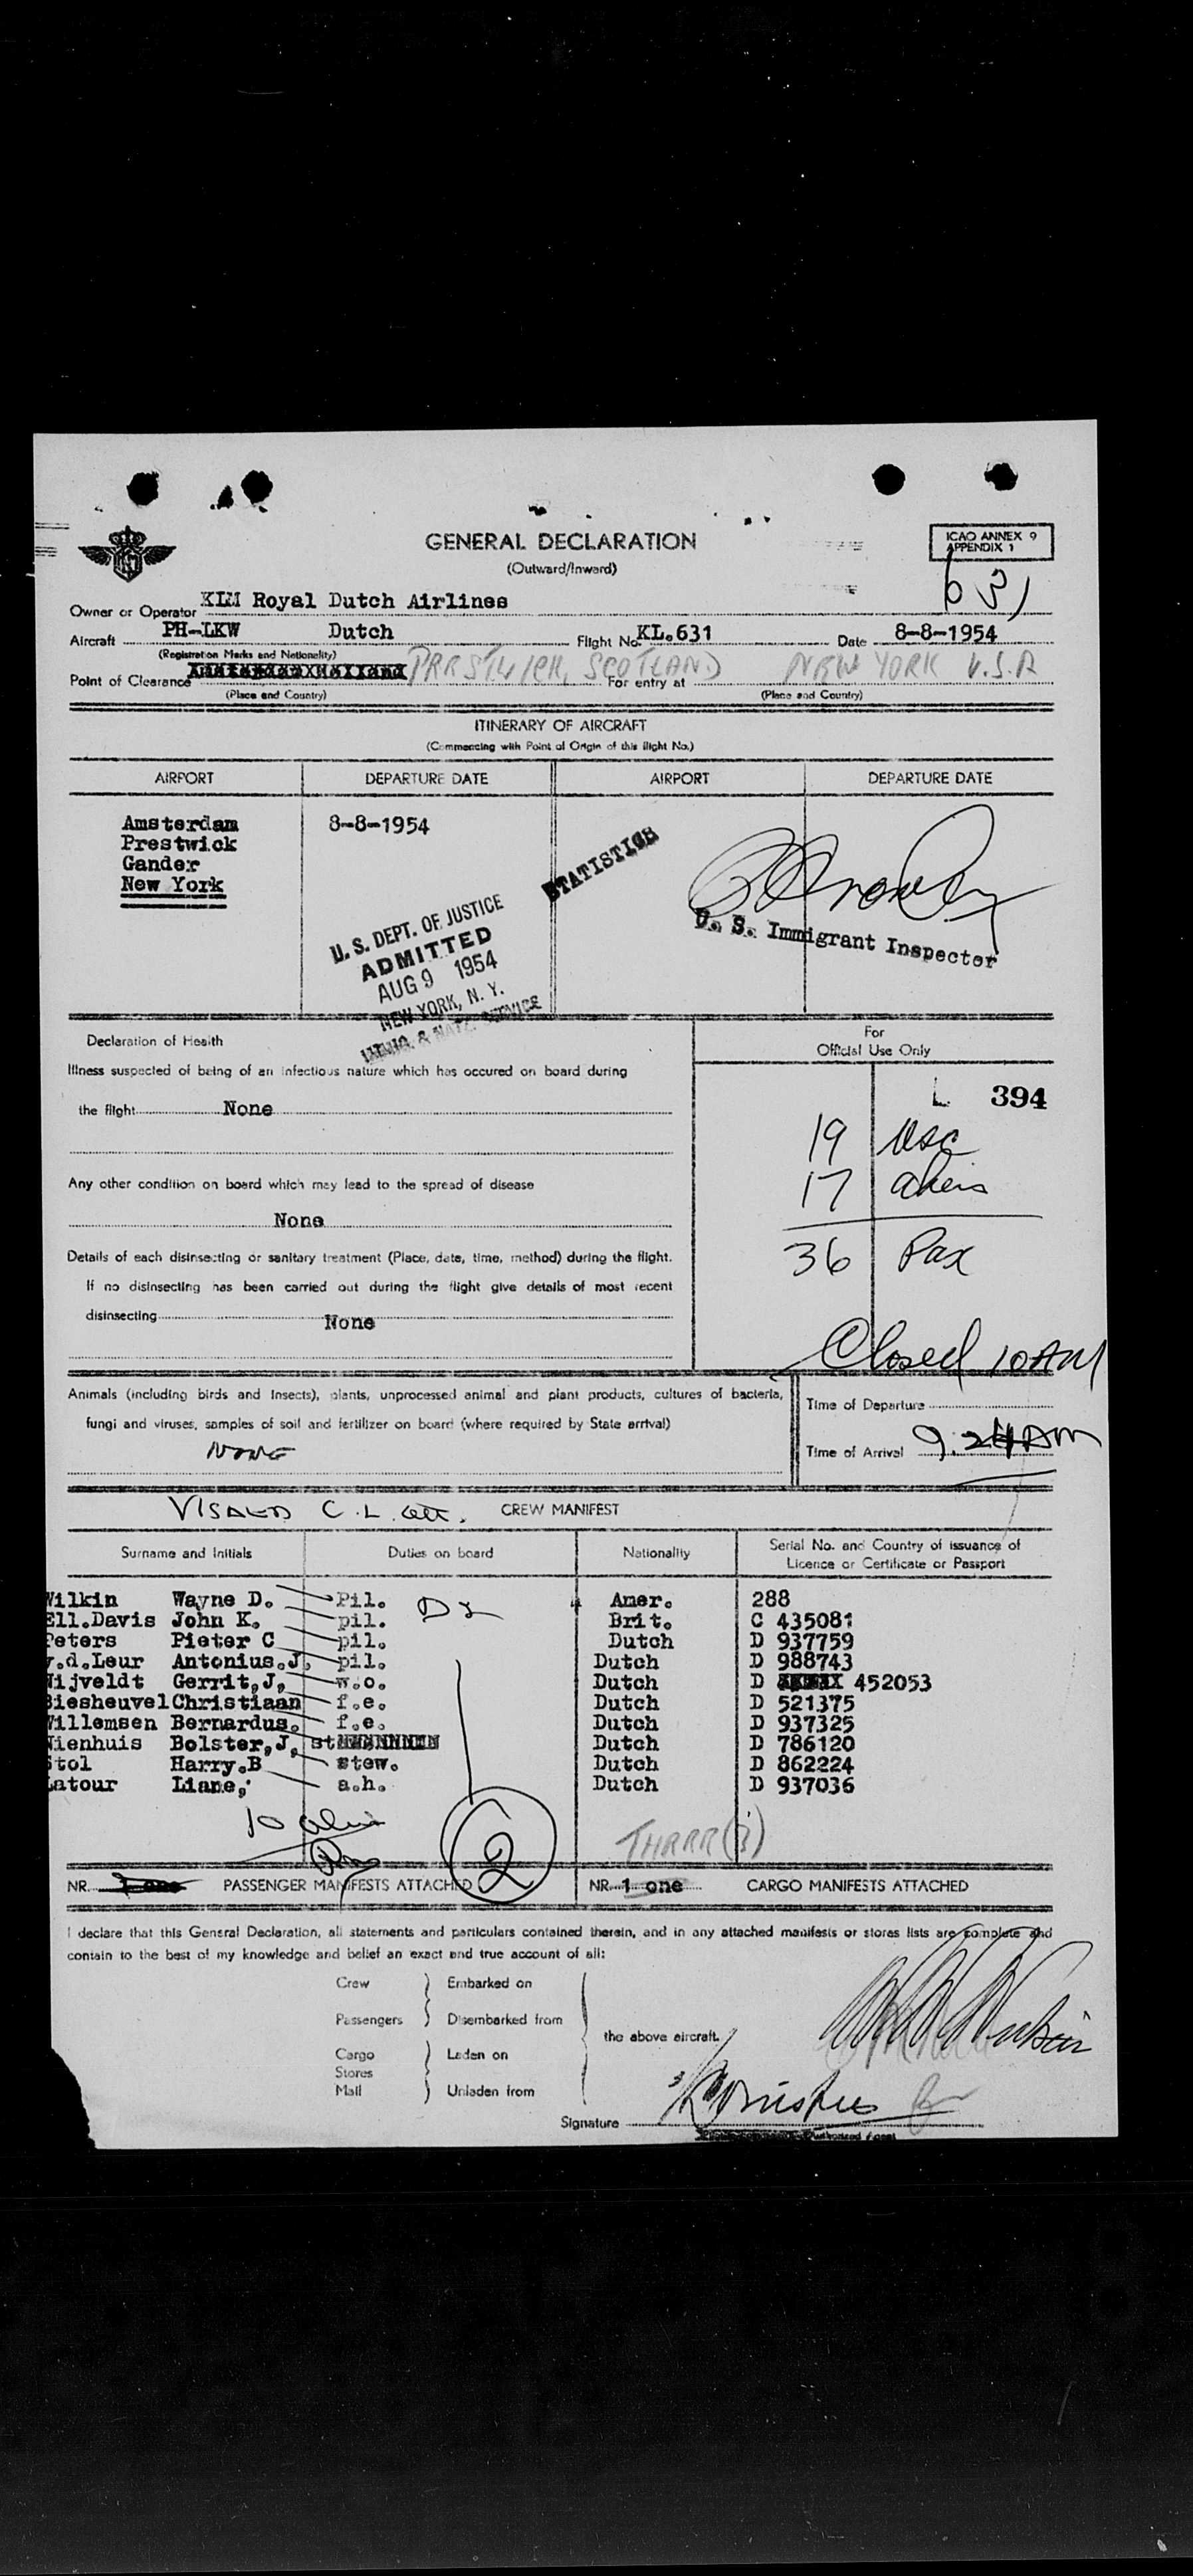 GENERAL DECLARATION
(Outward/Inward)
ICAO ANNEX 9
APPENDIX 1
631
Owner or Operator KLM Royal Dutch Airlines
Aircraft PH-LKW Dutch Flight No. KL.631 Date 8-8-1954
(Registration Marks and Nationality)
Point of Clearance PRESTWICK, SCOTLAND For entry at NEW YORK U.S.A
(Place and Country) (Place and Country)
ITINERARY OF AIRCRAFT
(Commencing with Point of Origin of this flight No.)
AIRPORT DEPARTURE DATE AIRPORT DEPARTURE DATE
Amsterdam 8-8-1954
Prestwick
Gander
New York
STATISTICS
U. S. DEPT. OF JUSTICE
ADMITTED
AUG 9 1954
NEW YORK, N. Y.
IMMIG. & NATZ. SERVICE
U. S. Immigrant Inspector
Declaration of Health
For
Official Use Only
Illness suspected of being of an infectious nature which has occured on board during
the flight None
L 394
19 usc
17 aliens
36 Pax
Any other condition on board which may lead to the spread of disease
None
Details of each disinsecting or sanitary treatment (Place, date, time, method) during the flight.
If no disinsecting has been carried out during the flight give details of most recent
disinsecting None
Closed 10 AM
Animals (including birds and insects), plants, unprocessed animal and plant products, cultures of bacteria,
fungi and viruses, samples of soil and fertilizer on board (where required by State arrival)
NONE
Time of Departure
Time of Arrival 9.24 AM
VISAED C.L. CREW MANIFEST
Surname and Initials Duties on board Nationality Serial No. and Country of issuance of
Licence or Certificate or Passport
Wilkin Wayne D. Pil. Amer. 288
Ell.Davis John K. pil. Brit. C 435081
Peters Pieter C pil. Dutch D 937759
v.d.Leur Antonius.J. pil. Dutch D 988743
Nijveldt Gerrit,J, w.o. Dutch D 452053
Biesheuvel Christiaan f.e. Dutch D 521375
Willemsen Bernardus. f.e. Dutch D 937325
Nienhuis Bolster,J, st Dutch D 786120
Stol Harry.B stew. Dutch D 862224
Latour Liane, a.h. Dutch D 937036
10
2
NR. PASSENGER MANIFESTS ATTACHED NR. 1 one CARGO MANIFESTS ATTACHED
I declare that this General Declaration, all statements and particulars contained therein, and in any attached manifests or stores lists are complete and
contain to the best of my knowledge and belief an exact and true account of all:
Crew Embarked on
Passengers Disembarked from
the above aircraft.
Cargo Laden on
Stores
Mail Unladen from
Signature